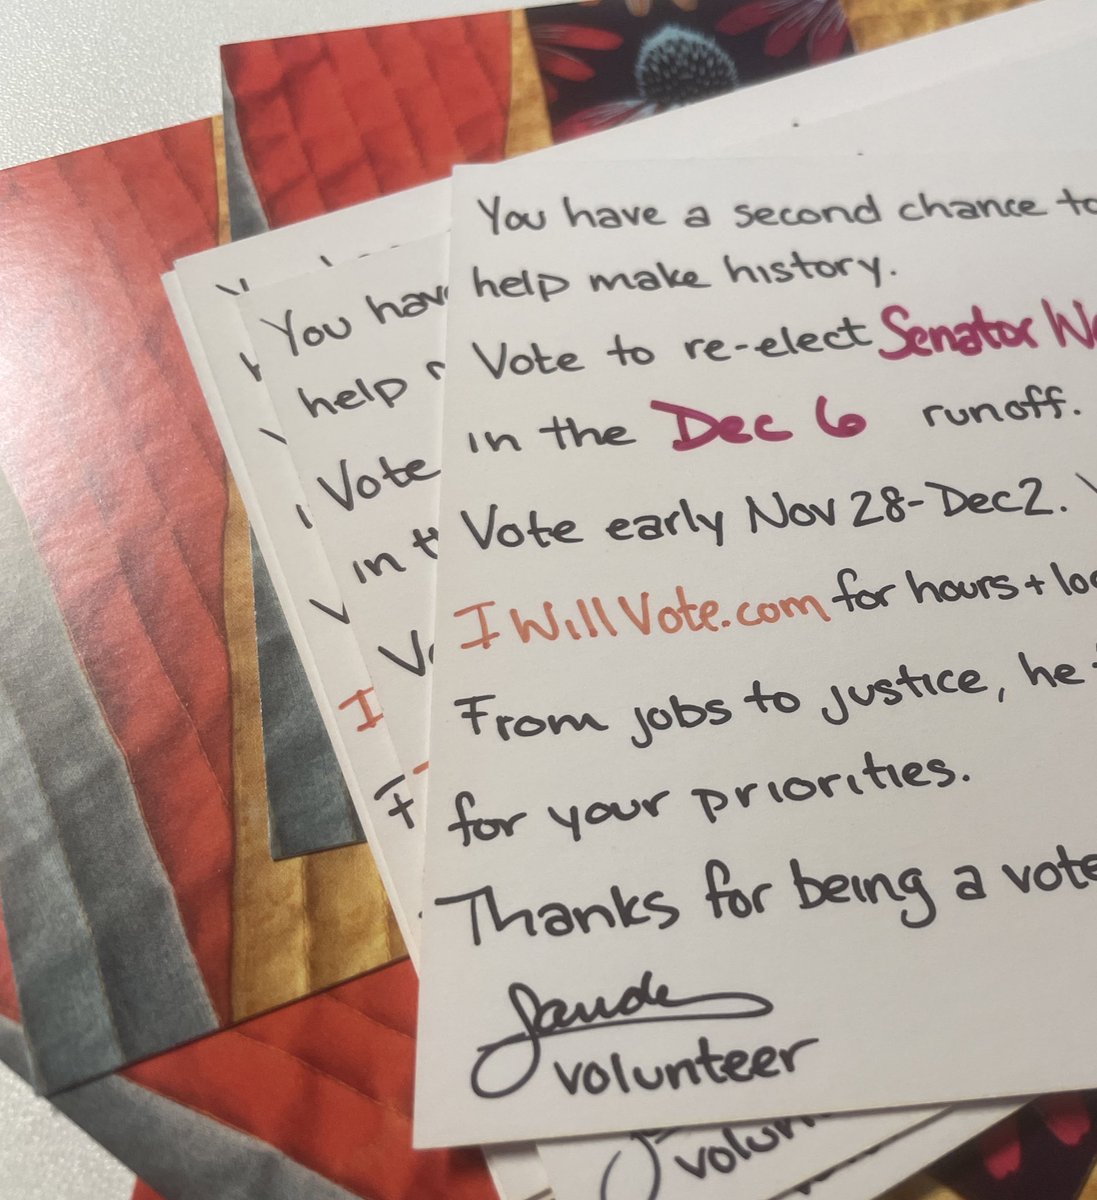 You have a second chance to
help make history.
Vote to re-elect Senator
in the Dec 6 runoff.
Vote early Nov 28-Dec2.
IWillVote.com for hours +
From jobs to justice, he
for your priorities.
Thanks for being a vote
volunteer
You have
help
Vote
in
I
volun